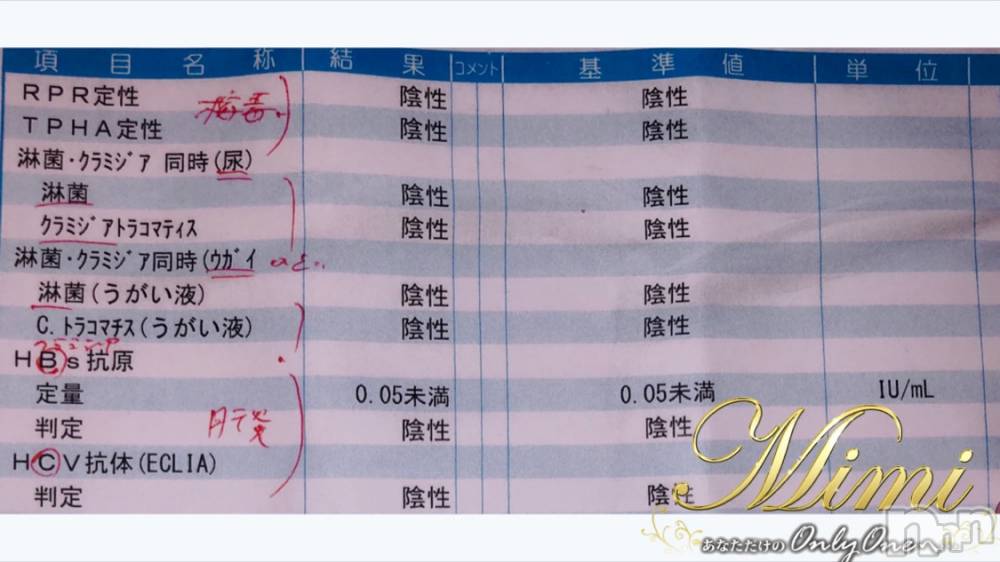 項目名称 結果 コメント 基準値 単位
RPR定性 陰性 陰性
梅毒
TPHA定性 陰性 陰性
淋菌・クラミジア 同時(尿)
淋菌 陰性 陰性
クラミジアトラコマティス 陰性 陰性
淋菌・クラミジア同時(ウガイ
のど
淋菌(うがい液) 陰性 陰性
C.トラコマチス(うがい液) 陰性 陰性
クラミジア
HBs抗原
定量 0.05未満 0.05未満 IU/mL
判定 陰性 陰性
肝炎
HCV抗体(ECLIA)
判定 陰性 陰性
Mimi
あなただけの OnlyOne